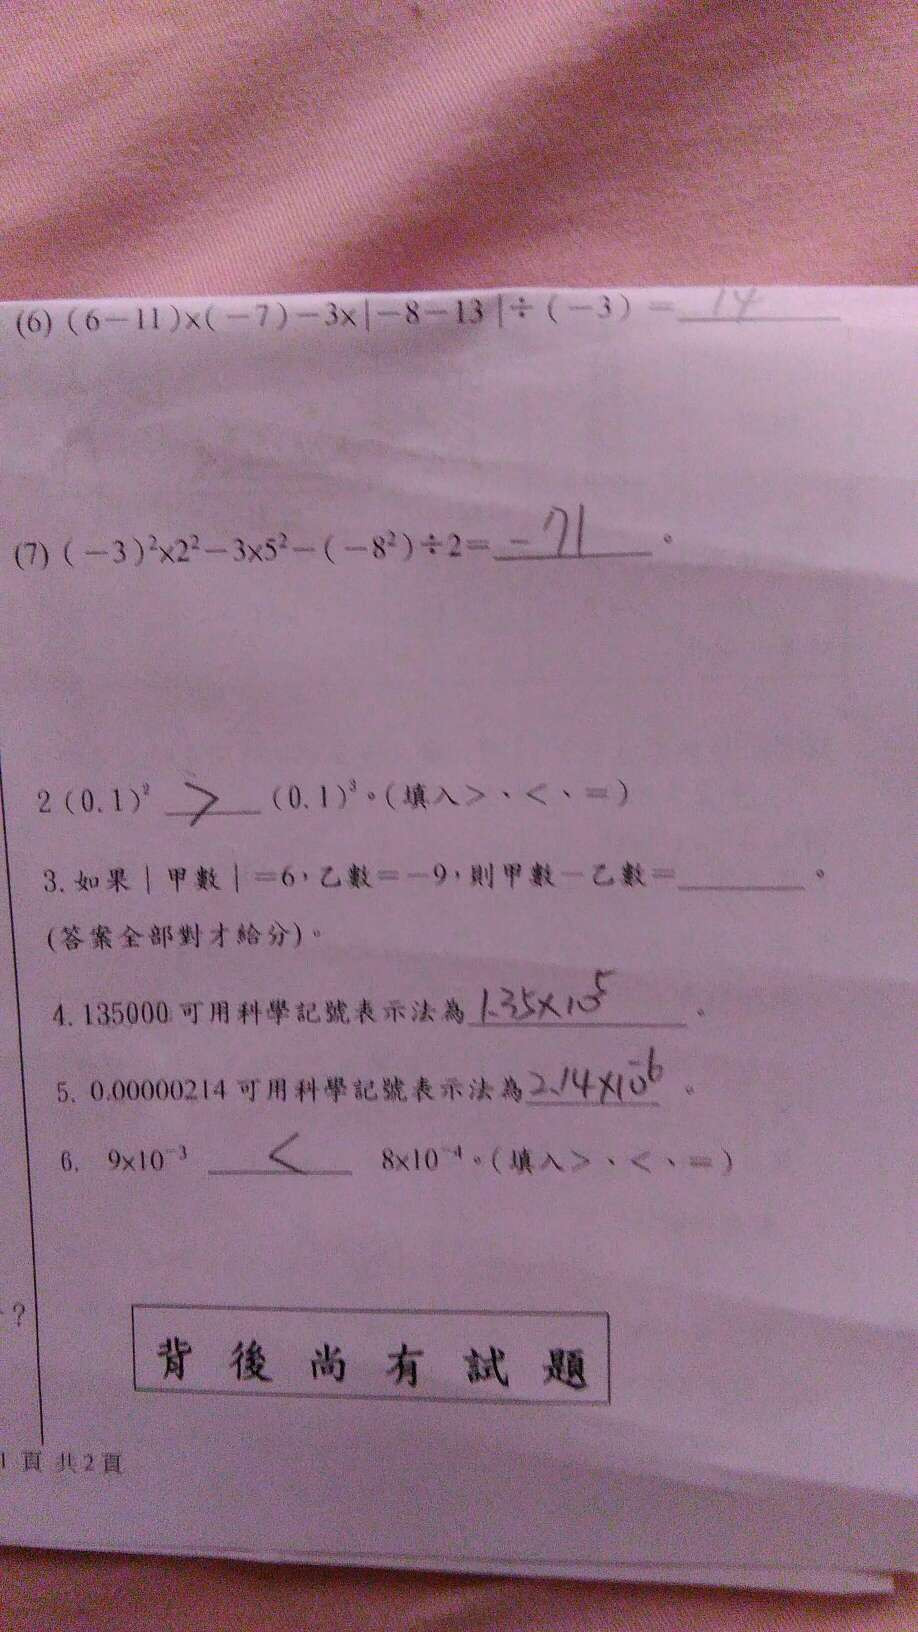 (6) (6－11)×(－7)－3×|－8－13|÷(－3) = 14
(7) (－3)²×2²－3×5²－(－8²)÷2= -71 。
2 (0.1)² > (0.1)³。(填入>、<、=)
3. 如果|甲數|=6，乙數=－9，則甲數－乙數=________。
(答案全部對才給分)。
4. 135000 可用科學記號表示法為 1.35×10⁵ 。
5. 0.00000214 可用科學記號表示法為 2.14×10⁻⁶ 。
6. 9×10⁻³ < 8×10⁻⁴。(填入>、<、=)
?
背後尚有試題
1 頁 共2頁